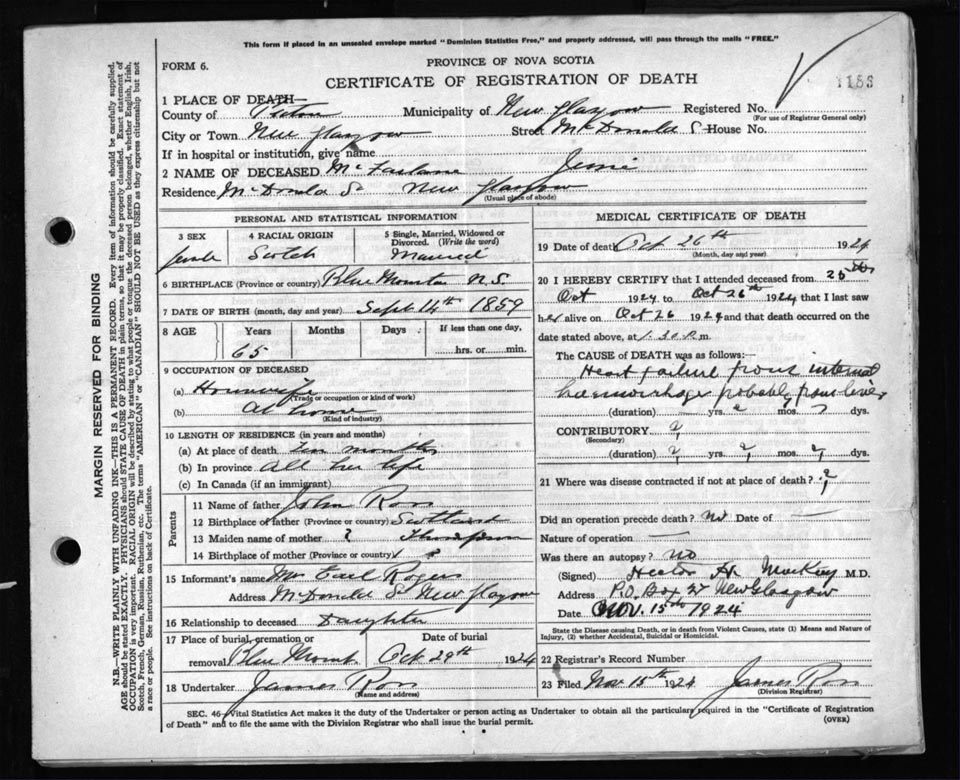 This form if placed in an unsealed envelope marked "Dominion Statistics Free," and properly addressed, will pass through the mails "FREE."
FORM 6.
PROVINCE OF NOVA SCOTIA
CERTIFICATE OF REGISTRATION OF DEATH
1 PLACE OF DEATH—
County of Pictou Municipality of New Glasgow Registered No.
(For use of Registrar General only)
City or Town New Glasgow Street McDonald St House No.
If in hospital or institution, give name
2 NAME OF DECEASED McFarlane Jessie
Residence McDonald St New Glasgow
(Usual place of abode)
PERSONAL AND STATISTICAL INFORMATION
3 SEX female
4 RACIAL ORIGIN Scotch
5 Single, Married, Widowed or Divorced. (Write the word) Married
6 BIRTHPLACE (Province or country) Blue Mountain N.S.
7 DATE OF BIRTH (month, day and year) Sept 14th 1859
8 AGE Years Months Days If less than one day,
65 hrs. or min.
9 OCCUPATION OF DECEASED
(a) Housewife
(Trade or occupation or kind of work)
(b) At home
(Kind of industry)
10 LENGTH OF RESIDENCE (in years and months)
(a) At place of death ten months
(b) In province All her life
(c) In Canada (if an immigrant)
Parents
11 Name of father John Ross
12 Birthplace of father (Province or country) Scotland
13 Maiden name of mother ? Thompson
14 Birthplace of mother (Province or country) ?
15 Informant's name Mrs Earl Rogers
Address McDonald St New Glasgow
16 Relationship to deceased Daughter
17 Place of burial, cremation or removal Blue Mount. Date of burial Oct 29th 1924
18 Undertaker James Ross
(Name and address)
MEDICAL CERTIFICATE OF DEATH
19 Date of death Oct 26th 1924
(Month, day and year)
20 I HEREBY CERTIFY that I attended deceased from 25th
Oct 1924 to Oct 26th 1924 that I last saw
her alive on Oct 26 1924 and that death occurred on
date stated above, at 1.30 P.m.
The CAUSE of DEATH was as follows:—
Heart failure from internal
haemorrhage probably from liver
(duration) yrs. mos. dys.
CONTRIBUTORY ?
(Secondary)
(duration) ? yrs. ? mos. ? dys.
21 Where was disease contracted if not at place of death? ?
Did an operation precede death? No Date of —
Nature of operation —
Was there an autopsy? No
(Signed) Hector H. MacKay M.D.
Address P.O. Box New Glasgow
Date Nov. 15th 1924
State the Disease causing Death, or in death from Violent Causes, state (1) Means and Nature of Injury, (2) whether Accidental, Suicidal or Homicidal.
22 Registrar's Record Number
23 Filed Nov 15th 1924 James Ross
(Division Registrar)
SEC. 46—Vital Statistics Act makes it the duty of the Undertaker or person acting as Undertaker to obtain all the particulars required in the "Certificate of Registration
of Death" and to file the same with the Division Registrar who shall issue the burial permit.
(OVER)
MARGIN RESERVED FOR BINDING
N.B.—WRITE PLAINLY WITH UNFADING INK—THIS IS A PERMANENT RECORD. Every item of information should be carefully supplied.
AGE should be stated EXACTLY. PHYSICIANS should STATE CAUSE OF DEATH in plain terms, so that it may be properly classified. Exact statement of
OCCUPATION is very important. RACIAL ORIGIN will be described by stating to what people or tongue the deceased person belonged, whether English, Irish,
Scotch, French, German, Russian, Ruthenian, etc. The terms "AMERICAN" or "CANADIAN" SHOULD NOT BE USED as they express citizenship but not
a race or people. See instructions on back of Certificate.